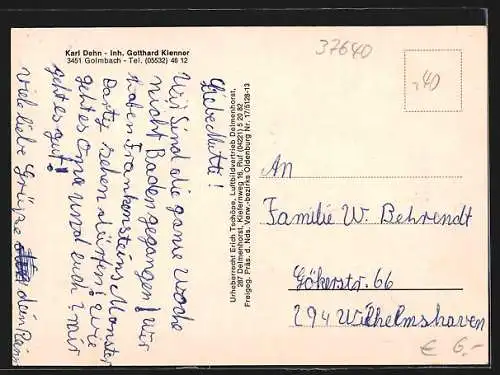 Karl Dehn - Inh. Gotthard Klenner
3451 Golmbach - Tel. (05532) 46 12
37640
-,40
Liebe Mutti!
Wir Sind die ganze Woche
nicht Baden gegangen! Wir
haben Frankensteins Monster
Party sehen dürfen! Wie
geht es Oma und euch? mir
geht es gut!
Viele liebe Grüße dein
Urheberrecht Erich Tschöpe, Luftbildvertrieb Delmenhorst,
287 Delmenhorst, Kiefernweg 18, Ruf (04221) 5 20 82
Freigeg. Präs. d. Nds. Verw.-bezirks Oldenburg Nr. 17/5128-13
An
Familie W. Behrendt
Gökerstr. 66
294 Wilhelmshaven
€ 6,-